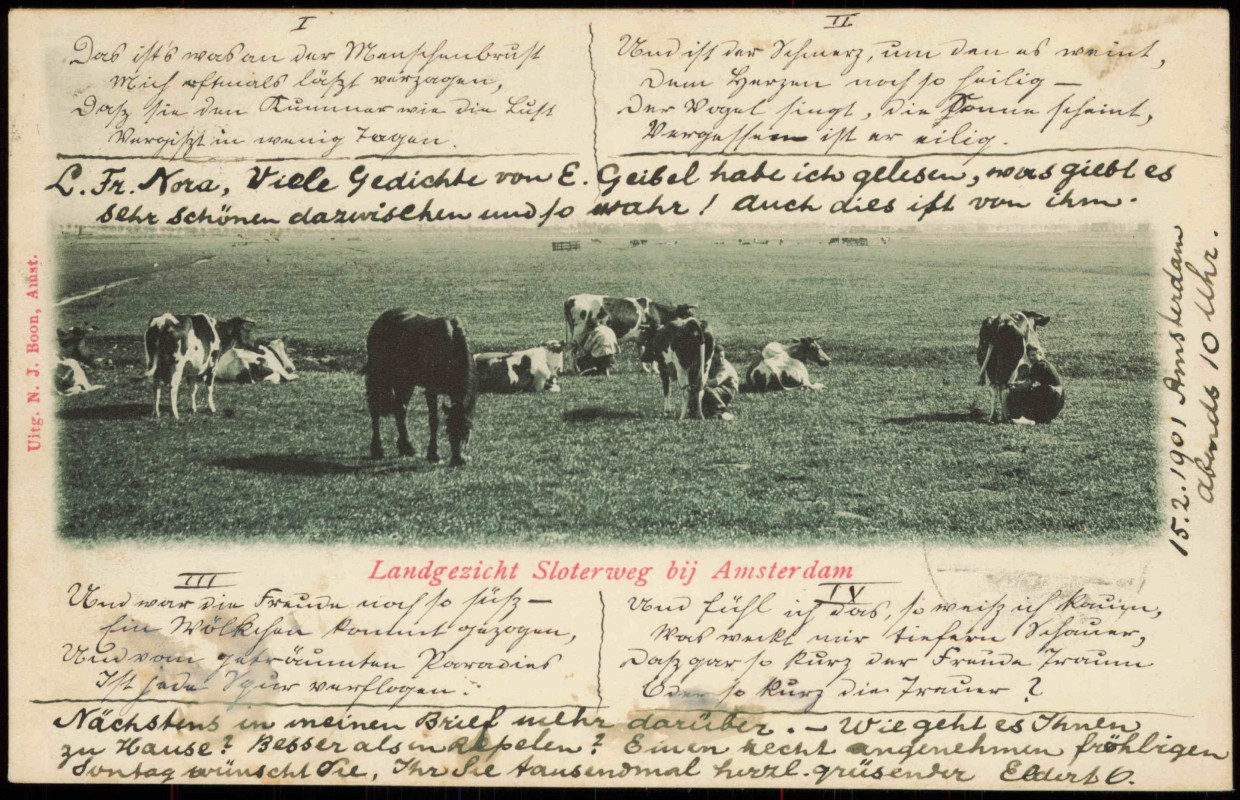 I
Das ist's was an der Menschenbrust
Mich oftmals läszt verzagen,
Dasz sie den Kummer wie die Lust
Vergiszt in wenig Tagen.
II
Und ist der Schmerz, um den es weint,
Dem Herzen noch so heilig —
Der Vogel singt, die Sonne scheint,
Vergessen ist er eilig.
L. Fr. Nora, Viele Gedichte von E. Geibel habe ich gelesen, was giebt es
sehr schönen dazwischen und so wahr! Auch dies ist von ihm.
Uitg. N. J. Boon, Amst.
15.2.1901 Amsterdam
abends 10 Uhr.
Landgezicht Sloterweg bij Amsterdam
III
Und war die Freude noch so süsz —
Ein Wölkchen kommt gezogen,
Und vom geträumten Paradies
Ist jede Spur verflogen.
IV
Und fühl ich das, so weisz ich kaum,
Was weckt mir tiefern Schauer,
Dasz gar so kurz der Freude Traum
Oder so kurz die Trauer?
Nächstens in meinen Brief mehr darüber. — Wie geht es Ihnen
zu Hause? Besser als in Repelen? Einen recht angenehmen fröhligen
Sontag wünscht Sie, Ihr Sie tausendmal herzl. grüsender Eldert